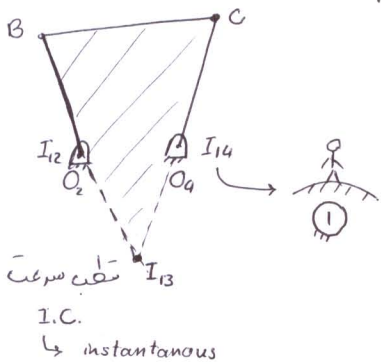 B
C
I12
O2
O4
I14
1
I13
قطب سرعت
I.C.
↳ instantanous